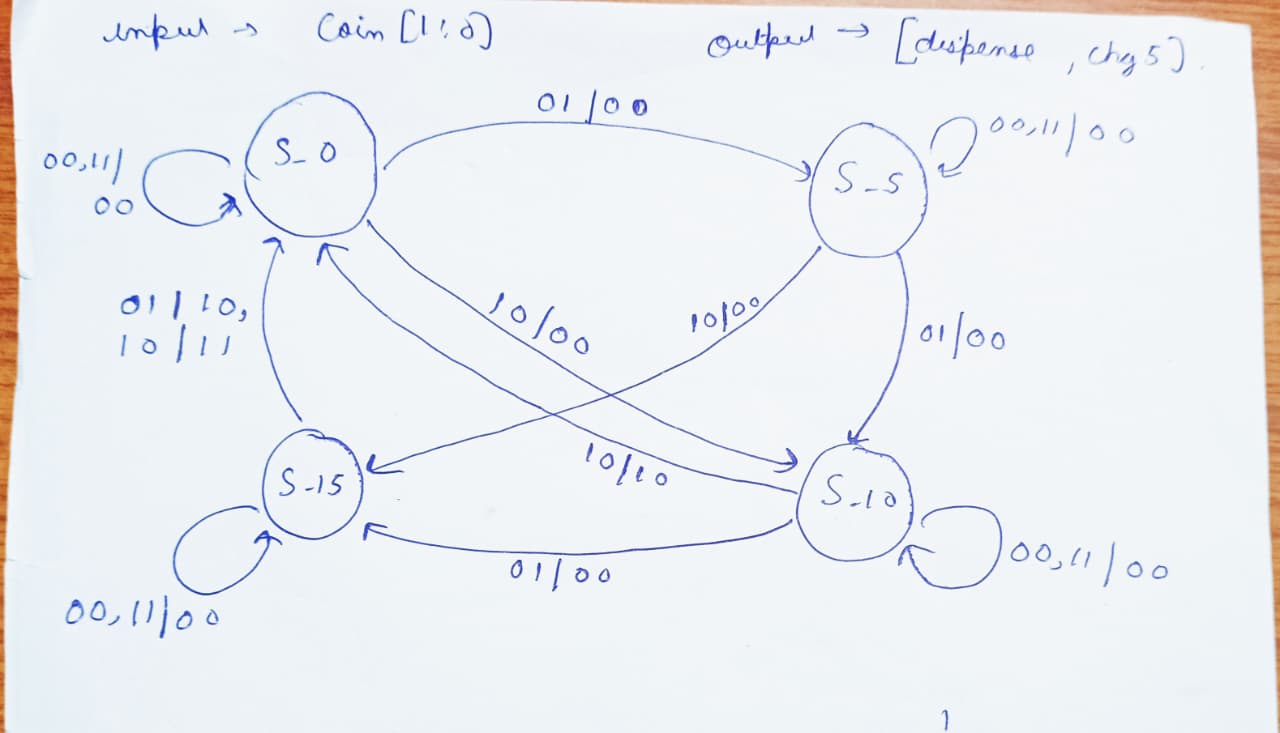 input → Coin [1:0]
Output → [dispense, chg5].
01/00
S_0
S_5
00,11/00
00,11/
00
10/00
10/00
01/00
01/10,
10/11
10/10
S_15
S_10
00,11/00
01/00
00,11/00
1